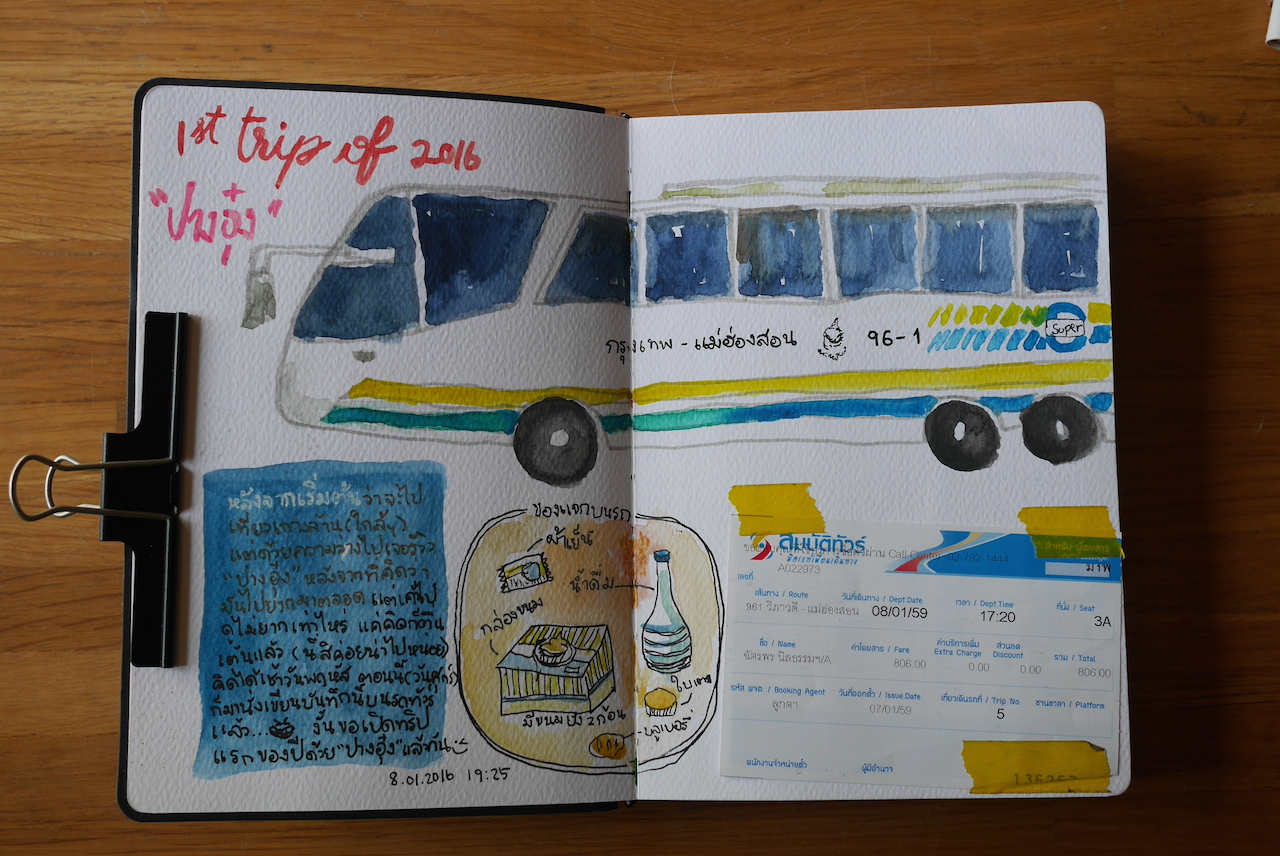 1st trip of 2016
"ปางอุ๋ง"
กรุงเทพ - แม่ฮ่องสอน 96-1
Super
หลังจากเริ่มต้นว่าจะไป
เที่ยวแถวบ้าน (ใกล้ๆ)
แต่ด้วยความ
"ปางอุ๋ง" หลังจากที่คิดว่า
มันไปยากมาตลอด แต่
ไม่ยากเท่าไหร่ แค่คิดก็ตื่น
เต้นแล้ว
คิดได้เช้าวันพฤหัส ตอนนี้ (วันศุกร์)
ก็มานั่งเขียนบันทึกนี้บนรถทัวร์
แล้ว... งั้นขอเปิดทริป
แรกของปีด้วย "ปางอุ๋ง" แล้วกัน
8.01.2016 19:25
ของแจกบนรถ
ผ้าเย็น
น้ำดื่ม
กล่องขนม
มีขนมปัง 2 ก้อน
ใบเตย
บลูเบอรี่
สมบัติทัวร์
มิตรแท้เพื่อนเดินทาง
Call Center 02-792-1444
สำหรับผู้โดยสาร
เลขที่ A022973
เส้นทาง / Route วันที่เดินทาง / Dept.Date เวลา / Dept.Time ที่นั่ง / Seat
961 วิภาวดี - แม่ฮ่องสอน 08/01/59 17:20 3A
ชื่อ / Name ค่าโดยสาร / Fare ค่าบริการเพิ่ม Extra Charge ส่วนลด Discount รวม / Total
ฉัตรพร นิลธรรมฯ/A 806.00 0.00 0.00 806.00
รหัส พจต. / Booking Agent วันที่ออกตั๋ว / Issue.Date เที่ยวเดินรถที่ / Trip No. ชานชาลา / Platform
ลูกตา 07/01/59 5
พนักงานจำหน่ายตั๋ว ผู้มีอำนาจ